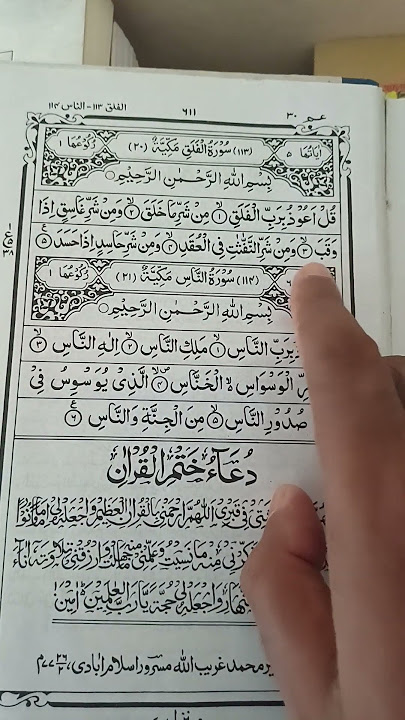 عم ٣٠ ٦١١ الفلق ١١٣ - الناس ١١٤
اٰيَاتُهَا ٥ (١١٣) سُوْرَةُ الْفَلَقِ مَكِّيَّةٌ (٢٠) رُكُوْعُهَا ١
بِسْمِ اللّٰهِ الرَّحْمٰنِ الرَّحِيْمِ
قُلْ اَعُوْذُ بِرَبِّ الْفَلَقِ ۙ﴿١﴾ مِنْ شَرِّ مَا خَلَقَ ۙ﴿٢﴾ وَمِنْ شَرِّ غَاسِقٍ اِذَا
وَقَبَ ۙ﴿٣﴾ وَمِنْ شَرِّ النَّفّٰثٰتِ فِي الْعُقَدِ ۙ﴿٤﴾ وَمِنْ شَرِّ حَاسِدٍ اِذَا حَسَدَ ﴿٥﴾
٦ (١١٤) سُوْرَةُ النَّاسِ مَكِّيَّةٌ (٢١) رُكُوْعُهَا ١
بِسْمِ اللّٰهِ الرَّحْمٰنِ الرَّحِيْمِ
بِرَبِّ النَّاسِ ۙ﴿١﴾ مَلِكِ النَّاسِ ۙ﴿٢﴾ اِلٰهِ النَّاسِ ۙ﴿٣﴾
الْوَسْوَاسِ ۙ الْخَنَّاسِ ۙ﴿٤﴾ الَّذِيْ يُوَسْوِسُ فِيْ
صُدُوْرِ النَّاسِ ۙ﴿٥﴾ مِنَ الْجِنَّةِ وَالنَّاسِ ﴿٦﴾
دُعَآءُ خَتْمِ الْقُرْاٰنِ
فِيْ قَبْرِيْ اَللّٰهُمَّ ارْحَمْنِيْ بِالْقُرْاٰنِ الْعَظِيْمِ وَاجْعَلْهُ لِيْ اِمَامًا وَّنُوْرًا
مِنْهُ مَا نَسِيْتُ وَعَلِّمْنِيْ مِنْهُ مَا جَهِلْتُ وَارْزُقْنِيْ تِلَاوَتَهٗ اٰنَآءَ
وَاجْعَلْهُ لِيْ حُجَّةً يَّا رَبَّ الْعٰلَمِيْنَ اٰمِيْن
محمد غريب الله مسرور اسلام آبادی،